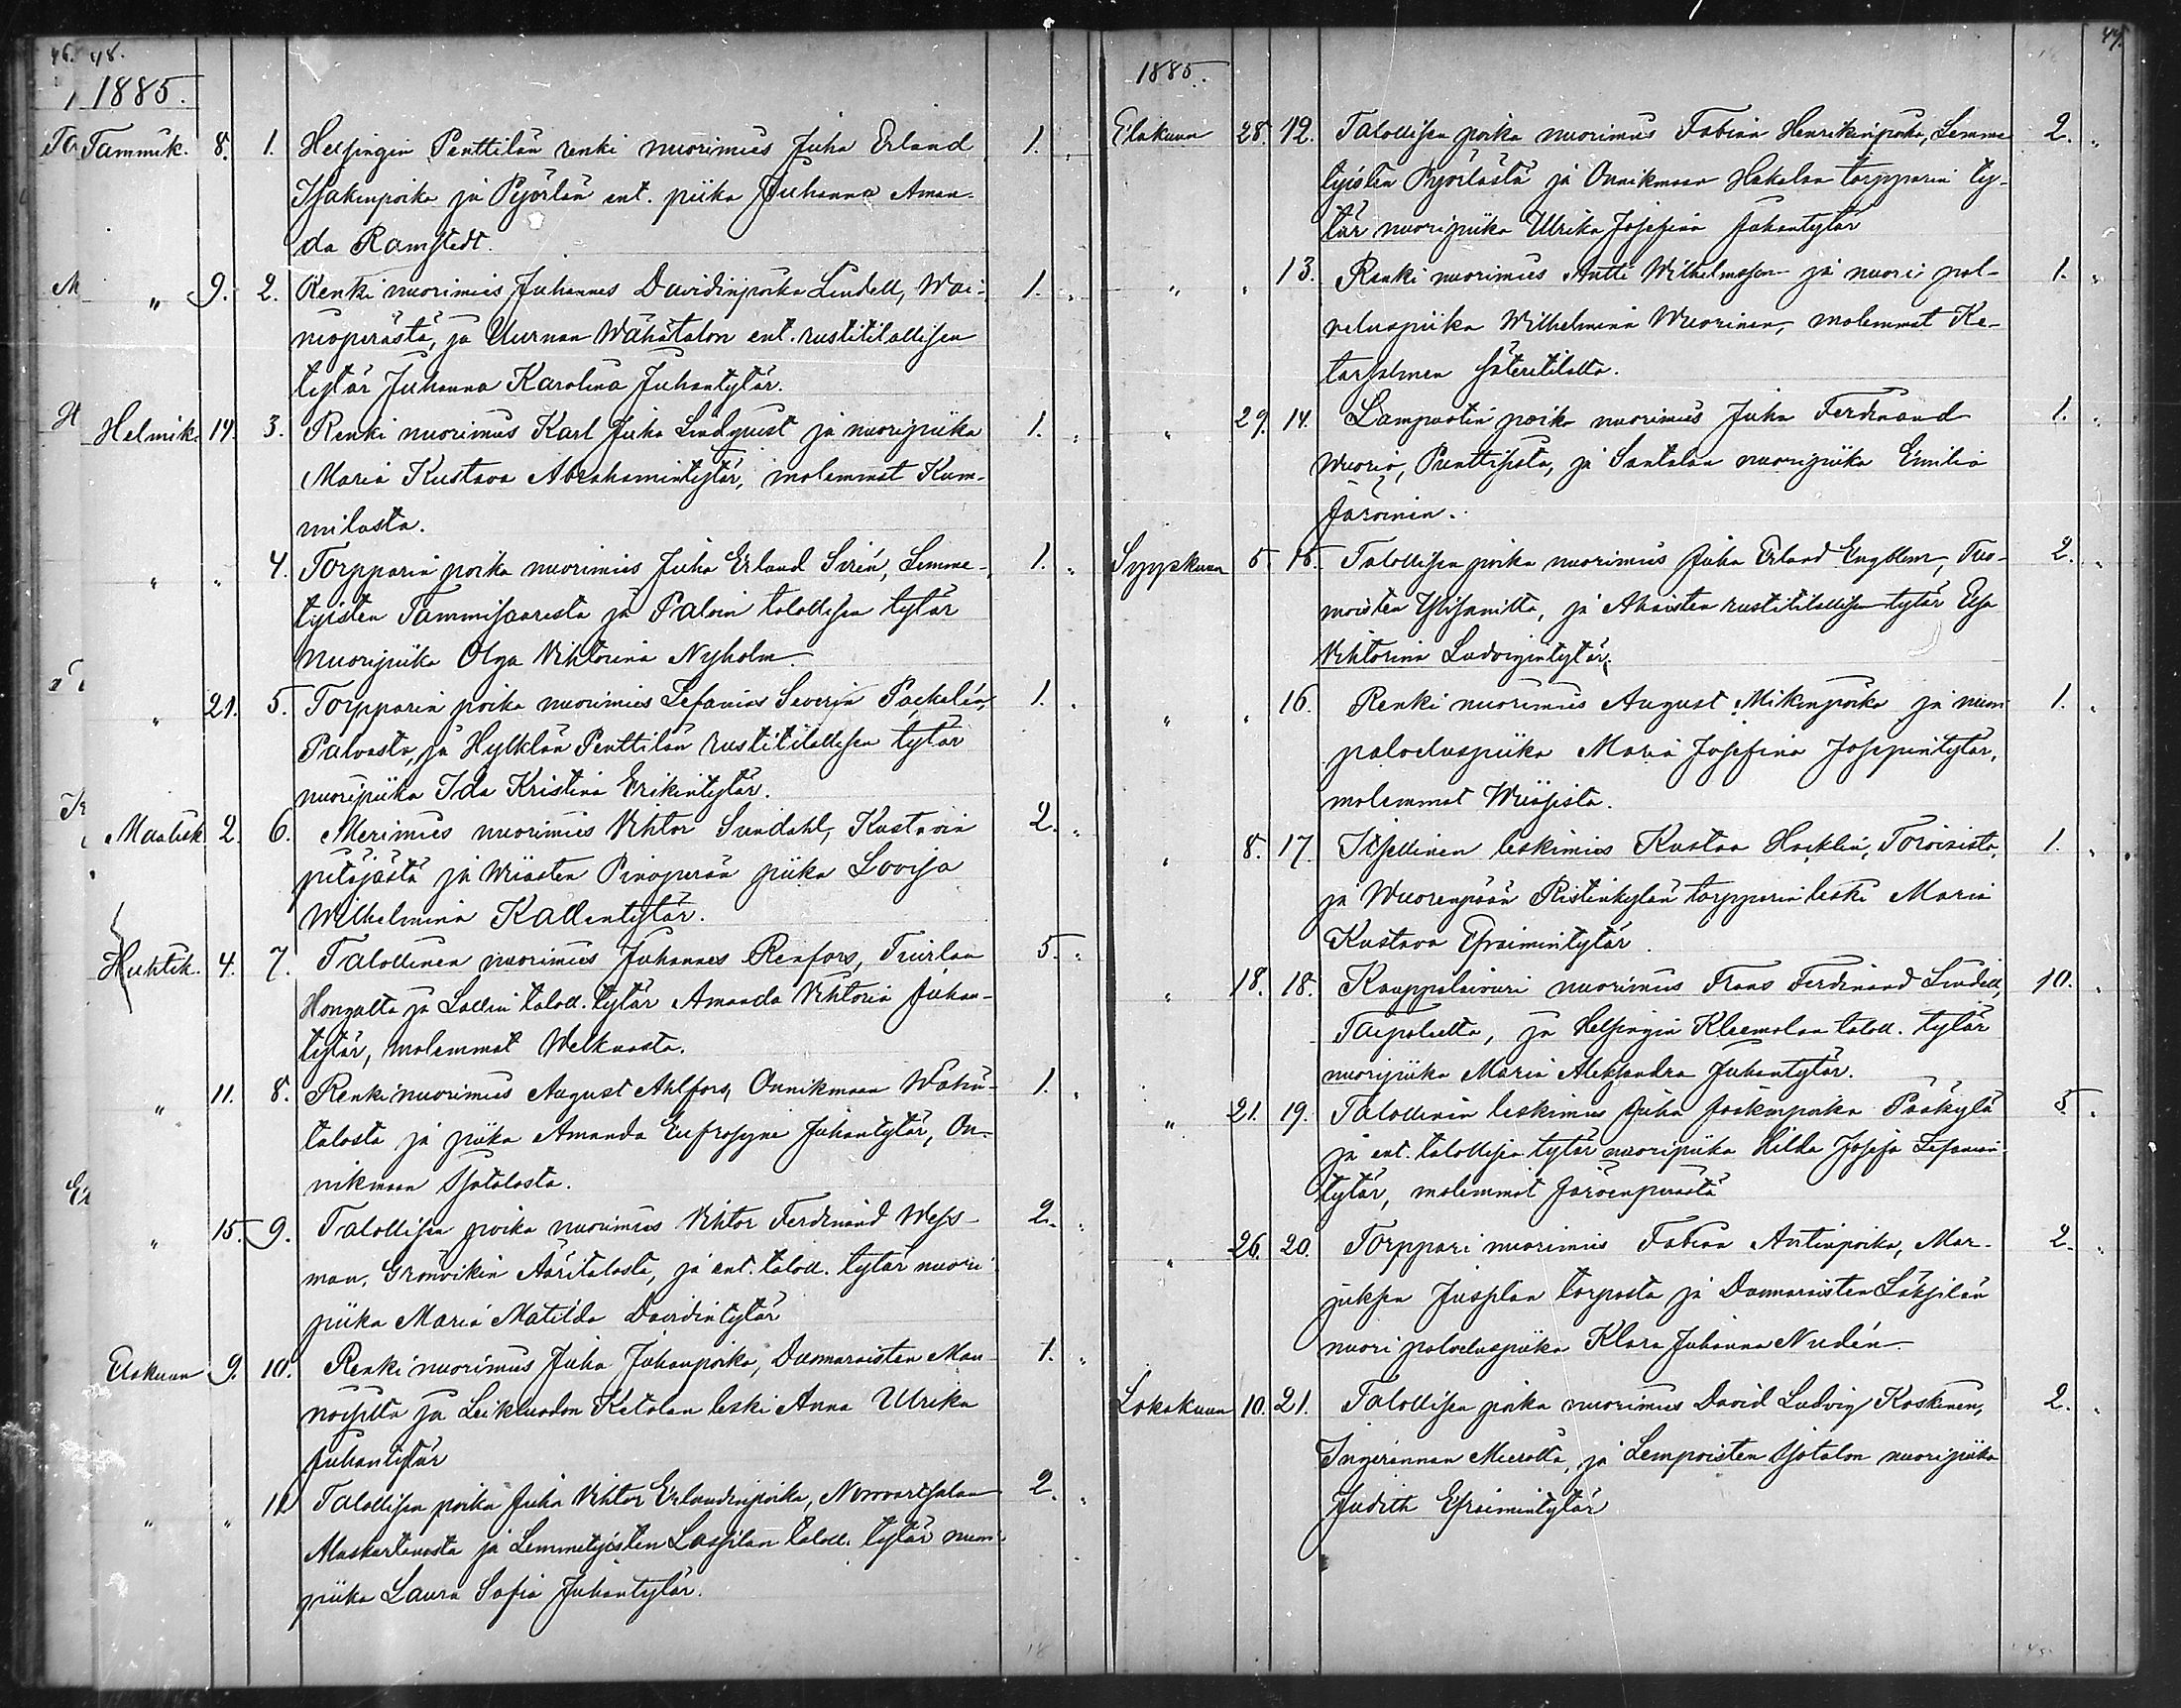 46. 48.
1885.
Tammik. 8. 1. Helsingin Penttilän renki nuorimies Juha Erland 1.
Isakinpoika ja Pyörlän ent. piika Juhanna Aman-
da Ramstedt.
" 9. 2. Renki nuorimies Juhannes Davidinpoika Lindell, Wai- 1.
niöperästä, ja Uurnan Wähätalon ent. rustitilallisen
tytär Juhanna Karolina Juhantytär.
Helmik. 14. 3. Renki nuorimies Karl Juha Lindquist ja nuoripiika 1.
Maria Kustava Abrahamintytär, molemmat Kum-
milasta.
" " 4. Torpparin poika nuorimies Juha Erland Sirén, Lemme- 1.
tyisten Tammisaaresta ja Palvin talollisen tytär
nuoripiika Olga Vihtorina Nyholm.
" 21. 5. Torpparin poika nuorimies Sefanias Severin Packalén, 1.
Palvasta, ja Hylklän Penttilän rustitilallisen tytär
nuoripiika Ida Kristina Erikintytär.
Maalisk. 2. 6. Merimies nuorimies Vihtor Sundahl, Kustavin 2.
pitäjästä ja Wiiasten Pinoperän piika Lovisa
Wilhelmina Kallentytär.
Huhtik. 4. 7. Talollinen nuorimies Juhannes Renfors, Tuirlan 5.
Hongalta ja Lallin taloll. tytär Amanda Vihtoria Juhan-
tytär, molemmat Welkuasta.
" 11. 8. Renki nuorimies August Ahlfors, Onnikmaan Wähä- 1.
talosta ja piika Amanda Eufrosyne Juhantytär, On-
nikmaan Isotalosta.
" 15. 9. Talollisen poika nuorimies Vihtor Ferdinand Wess- 2.
man, Grönvikin Ääritalosta, ja ent. taloll. tytär nuori
piika Maria Matilda Davidintytär
Elokuun 9. 10. Renki nuorimies Juha Juhanpoika, Dusmaraisten Man- 1.
noisilta ja Leikluodon Ketolan leski Anna Ulrika
Juhantytär
" " 11. Talollisen poika Juha Vihtor Erlandinpoika, 2.
Alaskartanosta ja Lemmetyisten Lassilan taloll. tytär nuori
piika Laura Sofia Juhantytär.
47.
1885.
Elokuun 28. 12. Talollisen poika nuorimies Fabian Henrikinpoika, Lemme- 2.
tyisten Pyörlästä ja Onnikmaan Hakalan torpparin ty-
tär nuoripiika Ulrika Josefina Juhantytär
" " 13. Renki nuorimies Antti Wilhelmsson ja nuori pal- 1.
veluspiika Wilhelmina Wuorinen, molemmat Ke-
tarsalmen säteritilalta.
" 29. 14. Lampuotin poika nuorimies Juha Ferdinand 1.
Wuorio, Punttisista, ja Santalan nuoripiika Emilia
Järvinen.
Syyskuun 5. 15. Talollisen poika nuorimies Juha Erland Engblom, Tuo- 2.
moisten Ylisimitta, ja Ahaisten rustitilallisen tytär Elsa
Vihtorina Ludvigintytär.
" " 16. Renki nuorimies August Mikinpoika ja nuori 1.
palveluspiika Maria Josefina Josepintytär,
molemmat Wiiaisista.
" 8. 17. Itsellinen leskimies Kustaa Hacklin, Toivisista, 1.
ja Wuorenpään Ristinkylän torpparin leski Maria
Kustava Efraimintytär.
" 18. 18. Kauppalaivuri nuorimies Frans Ferdinand Lindell, 10.
Taipaleelta, ja Helsingin Kleemolan taloll. tytär
nuoripiika Maria Aleksandra Juhantytär.
" 21. 19. Talollinen leskimies Juha Jaakonpoika Pääkylä 5.
ja ent. talollisen tytär nuoripiika Hilda Josefa Sefanian-
tytär, molemmat Järvenperästä
" 26. 20. Torppari nuorimies Fabian Antinpoika, Mar- 2.
juksen Jusslan torpasta ja Dusmaraisten Säksilän
nuori palveluspiika Klara Juhanna Nudén.
Lokakuun 10. 21. Talollisen poika nuorimies David Ludvig Koskinen, 2.
Ingerannan Mierolta, ja Lempoisten Isotalon nuoripiika
Judith Efraimintytär